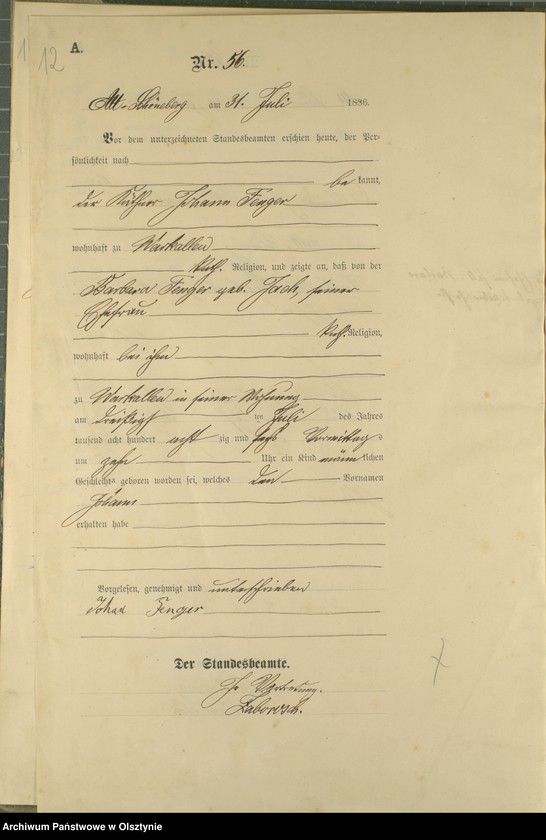 A.
12
Nr. 56.
Alt-Schöneberg am 31. Juli 1886.
Vor dem unterzeichneten Standesbeamten erschien heute, der Per-
sönlichkeit nach
be kannt,
der Käthner Johann Fenger
wohnhaft zu Warkallen
kath. Religion, und zeigte an, daß von der
Barbara Fenger geb. Jach, seiner
Ehefrau
kath. Religion,
wohnhaft bei ihm
zu Warkallen in seiner Wohnung
am dreißigsten Juli des Jahres
tausend acht hundert acht zig und sechs Vormittags
um zehn Uhr ein Kind männlichen
Geschlechts geboren worden sei, welches den Vornamen
Johann
erhalten habe
Vorgelesen, genehmigt und unterschrieben
Johan Fenger
Der Standesbeamte.
In Vertretung.
Archiwum Państwowe w Olsztynie